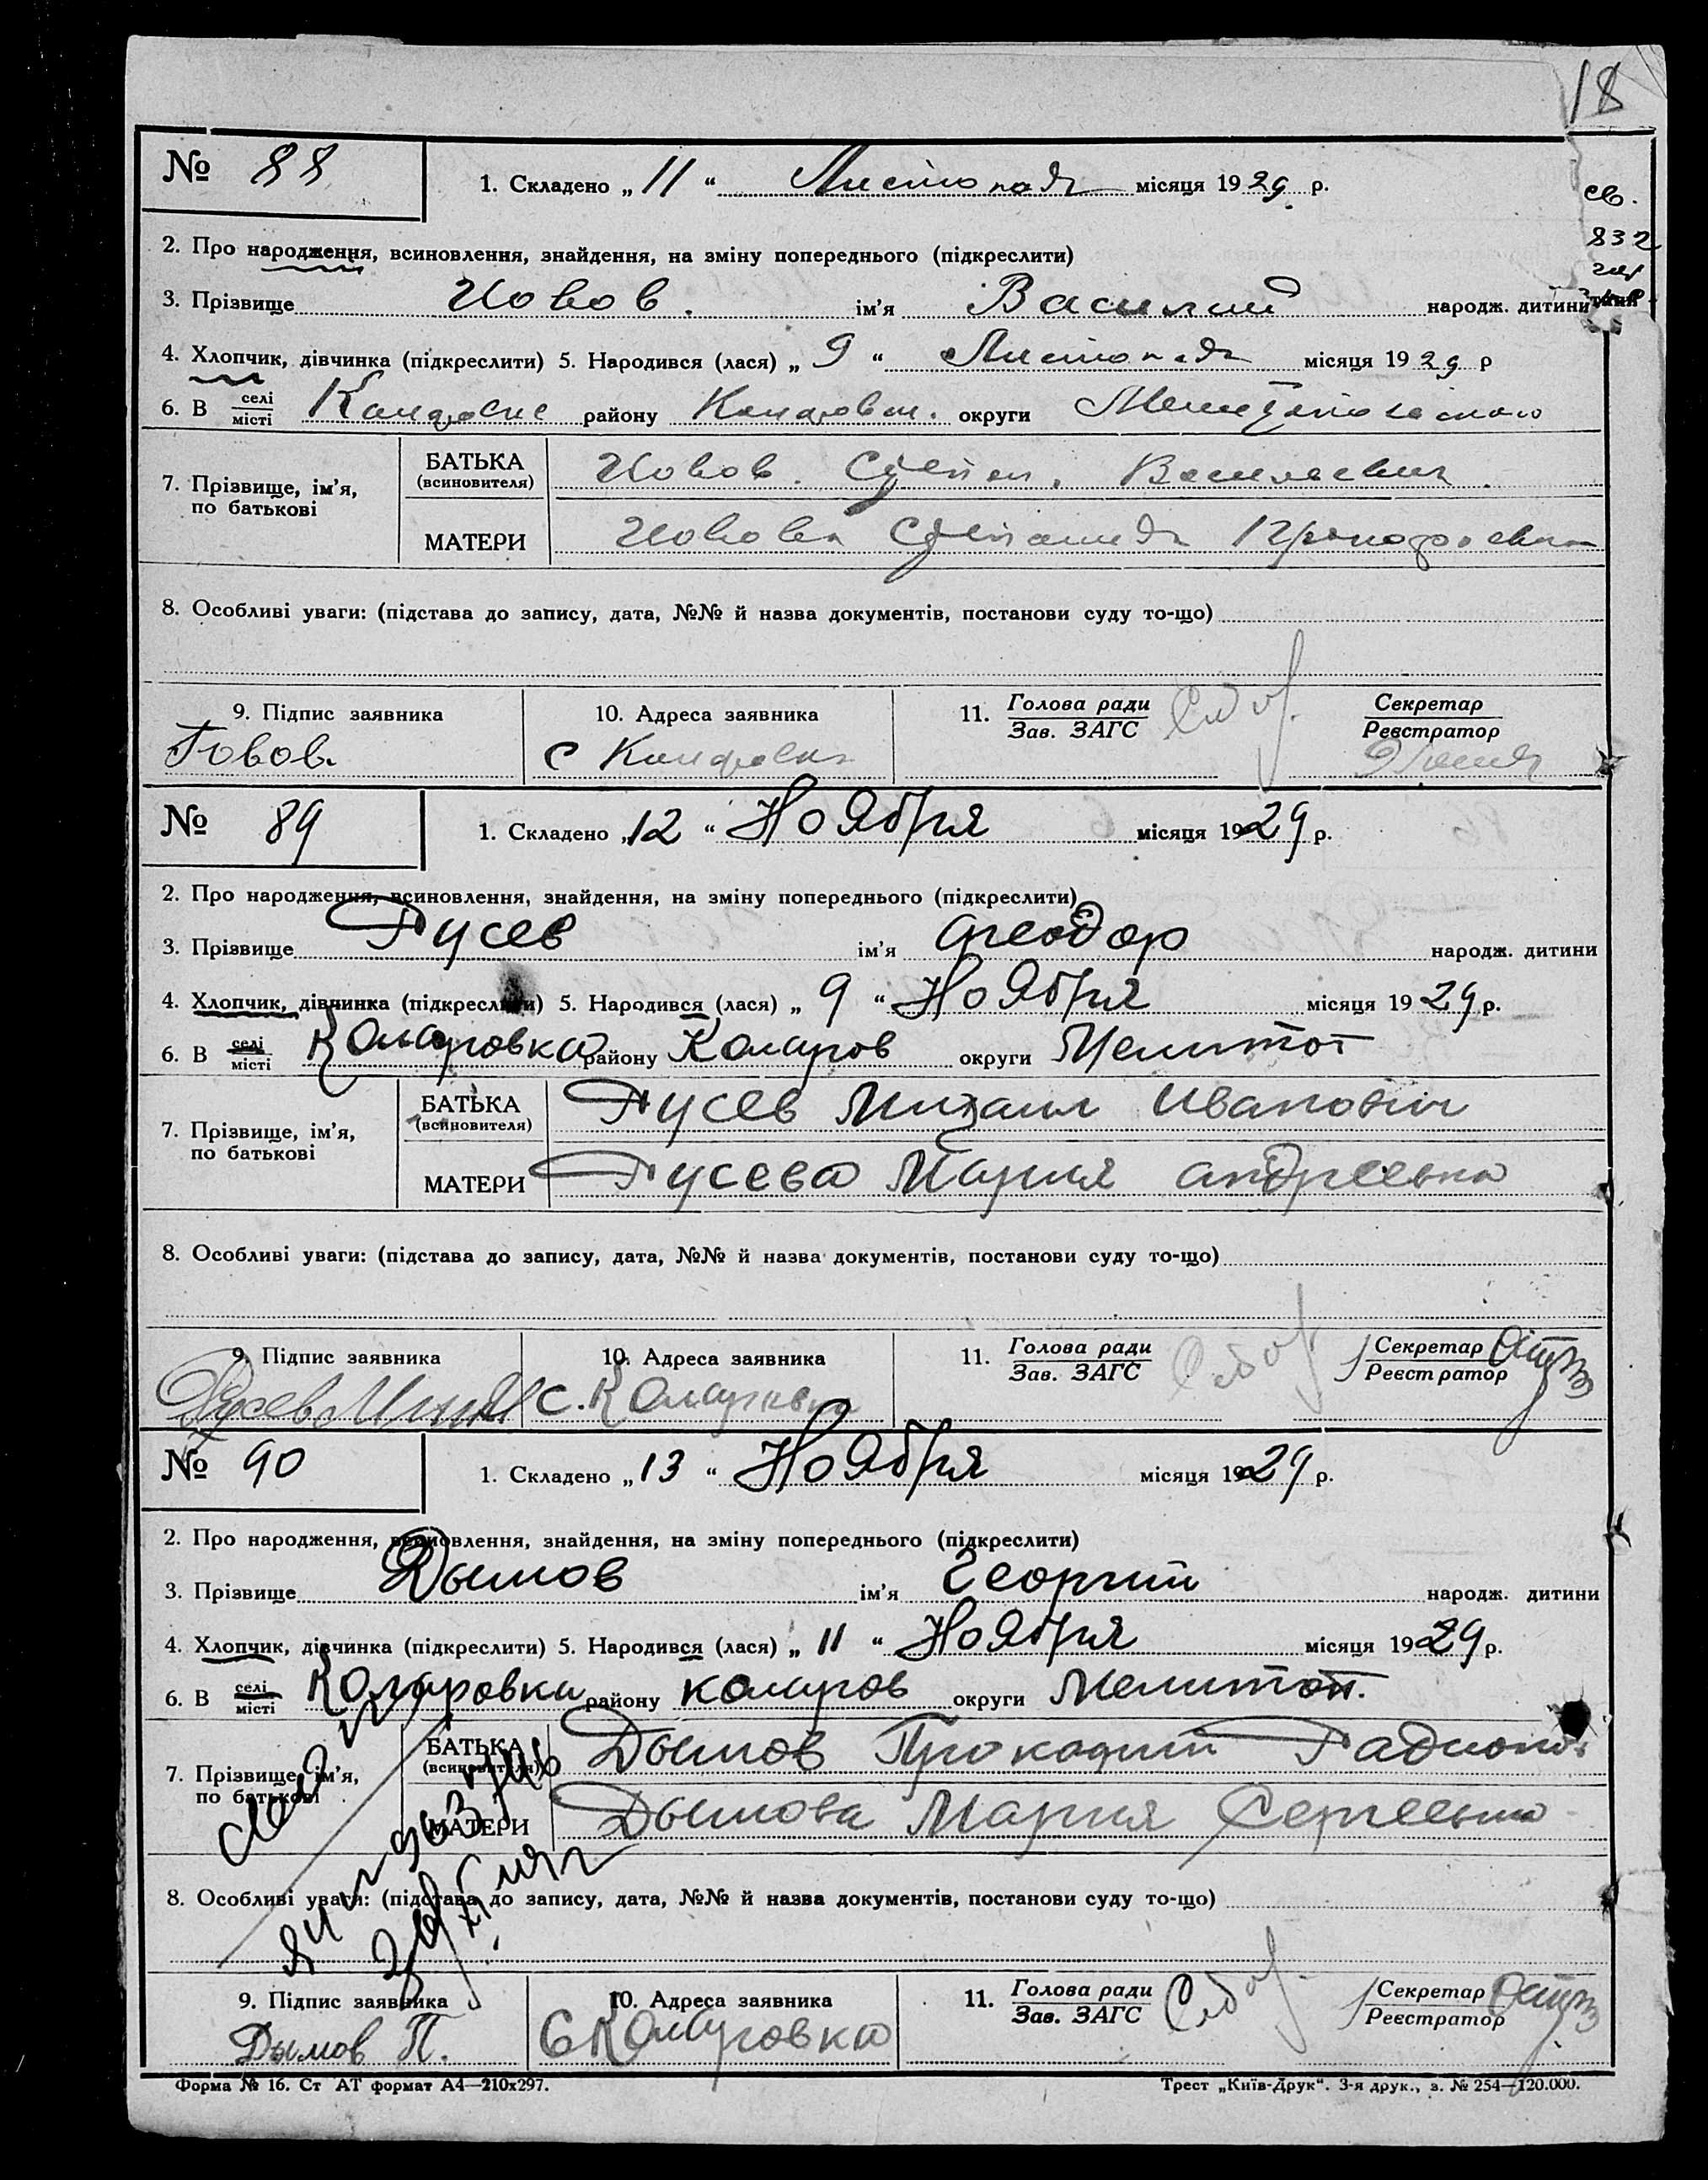 18
№ 88
1. Складено „ 11 “ Листопада місяця 1929 р.
св.
832
2. Про народження, всиновлення, знайдення, на зміну попереднього (підкреслити)
3. Прізвище Иовов. ім'я Василий народж. дитини
4. Хлопчик, дівчинка (підкреслити) 5. Народився (лася) „ 9 “ Листопада місяця 1929 р
6. В селі місті району округи
7. Прізвище, ім'я, по батькові
БАТЬКА (всиновителя) Иовов. Степан. Васильевич.
МАТЕРИ Иовова Степанида
8. Особливі уваги: (підстава до запису, дата, №№ й назва документів, постанови суду то-що)
9. Підпис заявника 10. Адреса заявника 11. Голова ради Зав. ЗАГС Секретар Реєстратор
Іовов. с
№ 89
1. Складено „ 12 “ Ноября місяця 1929 р.
2. Про народження, всиновлення, знайдення, на зміну попереднього (підкреслити)
3. Прізвище Гусев ім'я Феодор народж. дитини
4. Хлопчик, дівчинка (підкреслити) 5. Народився (лася) „ 9 “ Ноября місяця 1929 р.
6. В селі місті Коларовка району Коларов округи Мелитоп
7. Прізвище, ім'я, по батькові
БАТЬКА (всиновителя) Гусев Михаил Иванович
МАТЕРИ Гусева Мария Андреевна
8. Особливі уваги: (підстава до запису, дата, №№ й назва документів, постанови суду то-що)
9. Підпис заявника 10. Адреса заявника 11. Голова ради Зав. ЗАГС Секретар Реєстратор
Гусев с. Коларовка
№ 90
1. Складено „ 13 “ Ноября місяця 1929 р.
2. Про народження, всиновлення, знайдення, на зміну попереднього (підкреслити)
3. Прізвище Дымов ім'я Георгий народж. дитини
4. Хлопчик, дівчинка (підкреслити) 5. Народився (лася) „ 11 “ Ноября місяця 1929 р.
6. В селі місті Коларовка району Коларов округи Мелитоп.
7. Прізвище, ім'я, по батькові
БАТЬКА (всиновителя) Дымов
МАТЕРИ Дымова Мария Сергеевна
8. Особливі уваги: (підстава до запису, дата, №№ й назва документів, постанови суду то-що)
9. Підпис заявника 10. Адреса заявника 11. Голова ради Зав. ЗАГС Секретар Реєстратор
Дымов П. С Коларовка
Форма № 16. Ст АТ формат А4—210х297. Трест „Київ-Друк“. 3-я друк., з. № 254—120.000.